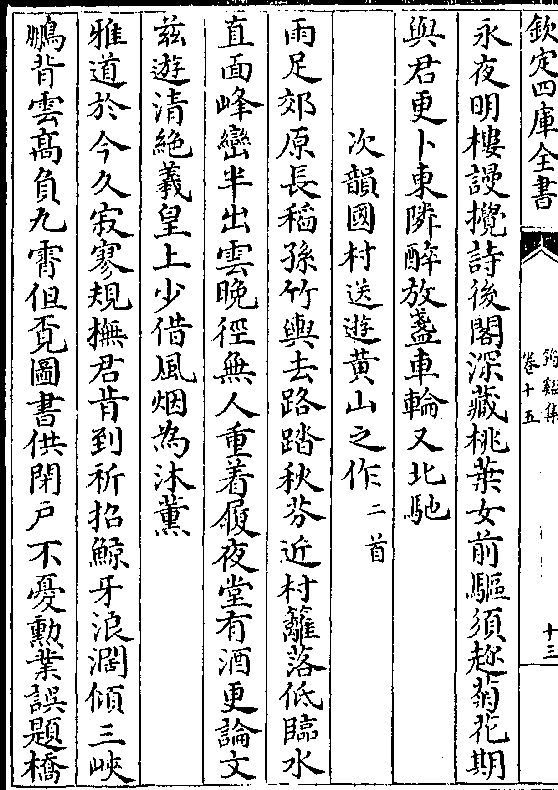 欽定四庫全書
筠谿集
卷十五
十三
永夜明樓謾攪詩後閣深藏桃葉女前驅須趂菊花期
與君更卜東隣醉放盞車輪又北馳
次韻國村送遊黄山之作二首
雨足郊原長稻孫竹輿去路踏秋芬近村籬落低臨水
直面峰巒半出雲晚徑無人重着屐夜堂有酒更論文
兹遊清絶羲皇上少借風烟為沐薰
雅道於今久寂寥規撫君肯到祈招鯨牙浪濶傾三峽
鵬背雲高負九霄但覓圖書供閉户不憂勲業誤題橋